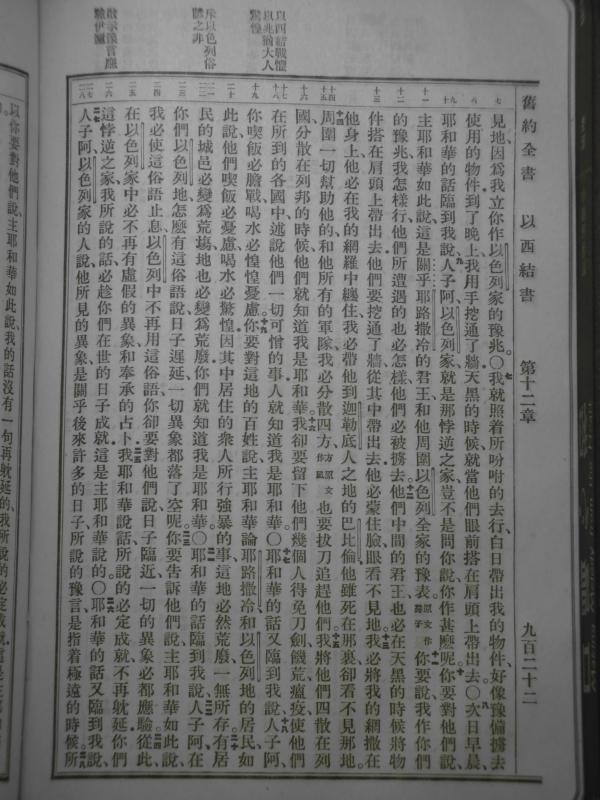 舊約全書 以西結書 第十二章 九百二十二
見地因爲我立你作以色列家的豫兆。○我就照着所吩咐的去行白日帶出我的物件好像豫備擄去
使用的物件到了晚上我用手挖通了牆天黑的時候就當他們眼前搭在肩頭上帶出去。○次日早晨、
耶和華的話臨到我說、人子阿、以色列家就是那悖逆之家豈不是問你說、你作甚麼呢。你要對他們說、
主耶和華如此說這是關乎耶路撒冷的君王和他周圍以色列全家的豫表 原文作擔子 你要說我作你們
的豫兆我怎樣行他們所遭遇的也必怎樣他們必被擄去他們中間的君王也必在天黑的時候將物
件搭在肩頭上帶出去他們要挖通了牆從其中帶出去他必蒙住臉眼看不見地我必將我的網撒在
他身上他必在我的網羅中纏住我必帶他到迦勒底人之地的巴比倫他雖死在那裏卻看不見那地。
周圍一切幫助他的和他所有的軍隊我必分散四方 方原文作風 也要拔刀追趕他們我將他們四散在列
國分散在列邦的時候他們就知道我是耶和華我卻要留下他們幾個人得免刀劍饑荒瘟疫使他們
在所到的各國中述說他們一切可憎的事人就知道我是耶和華。○耶和華的話又臨到我說、人子阿、
你喫飯必膽戰喝水必惶惶憂慮你要對這地的百姓說主耶和華論耶路撒冷和以色列地的居民如
此說他們喫飯必憂慮喝水必驚惶因其中居住的衆人所行強暴的事這地必然荒廢一無所存有居
民的城邑必變爲荒場地也必變爲荒廢你們就知道我是耶和華。○耶和華的話臨到我說、人子阿、在
你們以色列地怎麼有這俗語說日子遲延一切異象都落了空呢你要告訴他們說主耶和華如此說、
我必使這俗語止息以色列中不再用這俗語你卻要對他們說日子臨近一切的異象必都應驗從此、
在以色列家中必不再有虛假的異象和奉承的占卜我耶和華說話所說的必定成就不再躭延你們
這悖逆之家我所說的話必趁你們在世的日子成就這是主耶和華說的。○耶和華的話又臨到我說、
人子阿、以色列家的人說他所見的異象是關乎後來許多的日子所說的豫言是指着極遠的時候所
以你要對他們說、主耶和華如此說、我的話沒有一句再躭延的我所說的必定成就這是主
以西結戰慄
以兆猶大人
驚惶
斥以色列俗
語之非